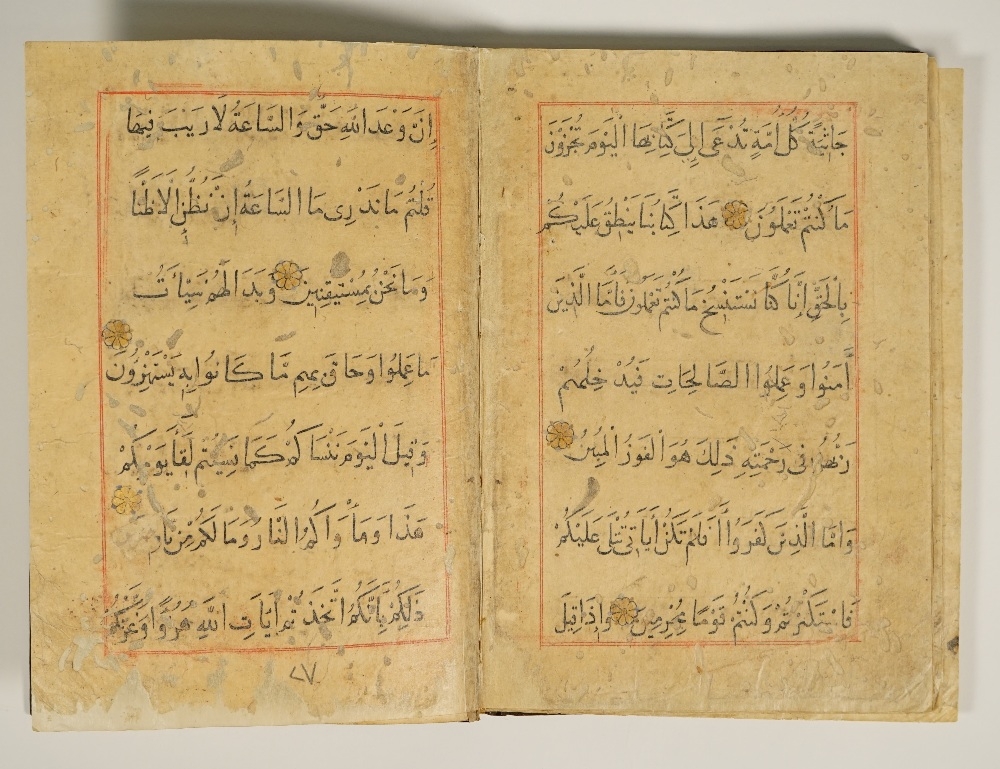 جَاثِيَةً كُلُّ أُمَّةٍ تُدْعَى إِلَى كِتَابِهَا الْيَوْمَ تُجْزَوْنَ
مَا كُنْتُمْ تَعْمَلُونَ هَذَا كِتَابُنَا يَنْطِقُ عَلَيْكُمْ
بِالْحَقِّ إِنَّا كُنَّا نَسْتَنْسِخُ مَا كُنْتُمْ تَعْمَلُونَ فَأَمَّا الَّذِينَ
آمَنُوا وَعَمِلُوا الصَّالِحَاتِ فَيُدْخِلُهُمْ
رَبُّهُمْ فِي رَحْمَتِهِ ذَلِكَ هُوَ الْفَوْزُ الْمُبِينُ
وَأَمَّا الَّذِينَ كَفَرُوا أَفَلَمْ تَكُنْ آيَاتِي تُتْلَى عَلَيْكُمْ
فَاسْتَكْبَرْتُمْ وَكُنْتُمْ قَوْمًا مُجْرِمِينَ وَإِذَا قِيلَ
إِنَّ وَعْدَ اللَّهِ حَقٌّ وَالسَّاعَةُ لَا رَيْبَ فِيهَا
قُلْتُمْ مَا نَدْرِي مَا السَّاعَةُ إِنْ نَظُنُّ إِلَّا ظَنًّا
وَمَا نَحْنُ بِمُسْتَيْقِنِينَ وَبَدَا لَهُمْ سَيِّئَاتُ
مَا عَمِلُوا وَحَاقَ بِهِمْ مَّا كَانُوا بِهِ يَسْتَهْزِءُونَ
وَقِيلَ الْيَوْمَ نَنْسَاكُمْ كَمَا نَسِيتُمْ لِقَاءَ يَوْمِكُمْ
هَذَا وَمَأْوَاكُمُ النَّارُ وَمَا لَكُمْ مِنْ نَاصِرِينَ
ذَلِكُمْ بِأَنَّكُمُ اتَّخَذْتُمْ آيَاتِ اللَّهِ هُزُوًا وَغَرَّتْكُمُ
٢٧